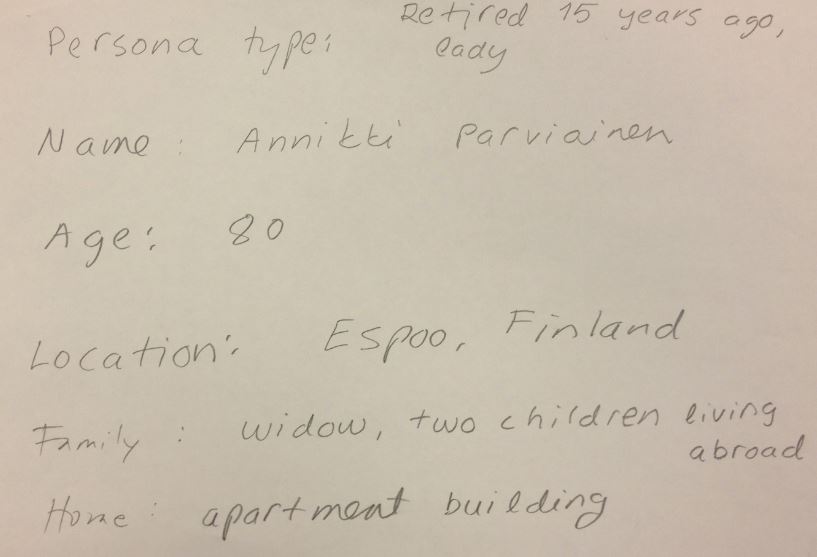 Persona type: Retired 15 years ago,
lady
Name: Annikki Parviainen
Age: 80
Location: Espoo, Finland
Family: widow, two children living
abroad
Home: apartment building